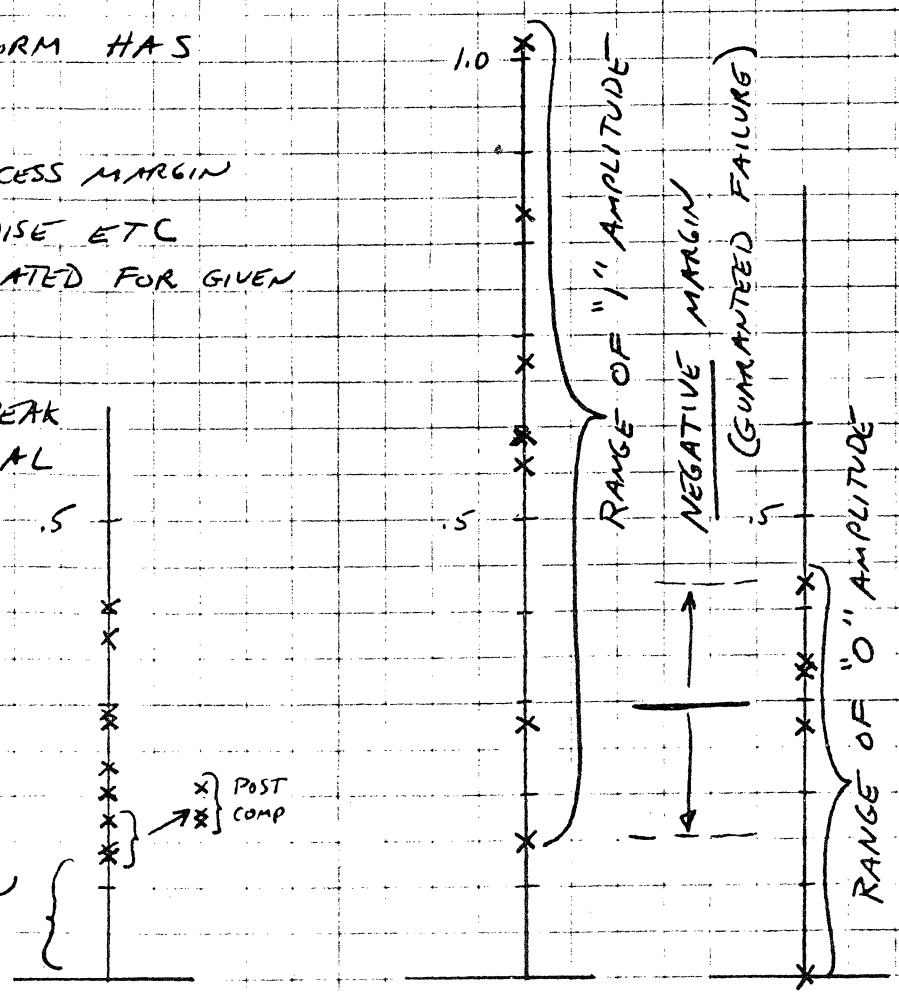 ORM HAS
CESS MARGIN
ISE ETC
ATED FOR GIVEN
EAK
AL
.5
POST
COMP
1.0
.5
RANGE OF "1" AMPLITUDE
NEGATIVE MARGIN
(GUARANTEED FAILURE)
.5
RANGE OF "0" AMPLITUDE